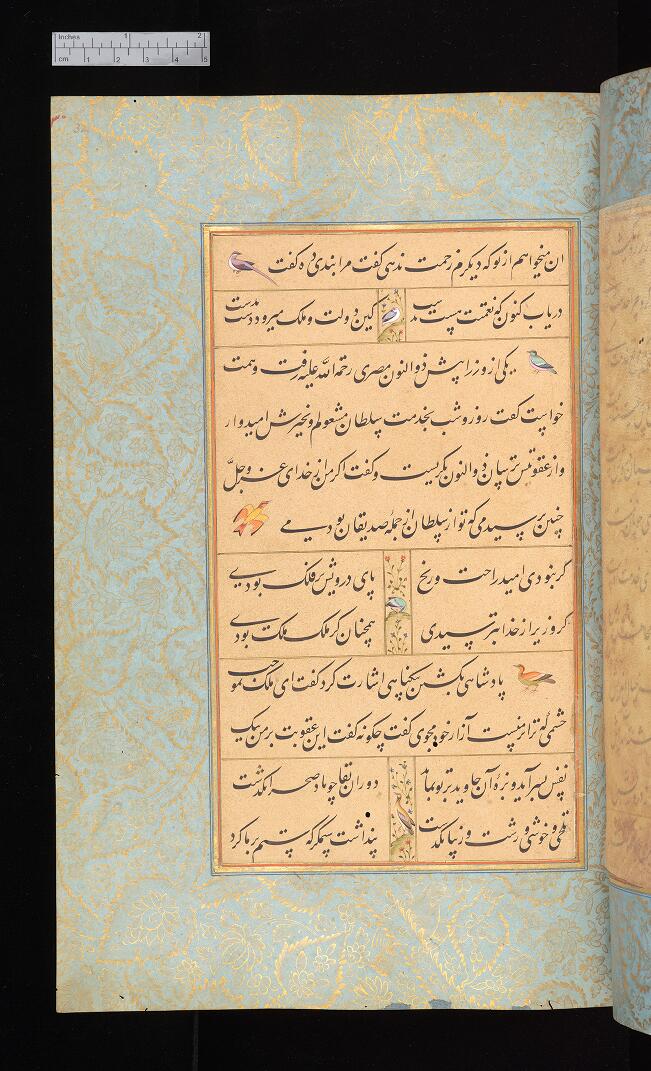 Inches 1 2
cm 1 2 3 4 5
32
ان میخواهم از تو که دیگرم زحمت ندهی گفت مرا پندی ده گفت
دریاب کنون که نعمتت هست بدست
کین دولت و ملک میرود دست بدست
یکی از وزرا پیش ذوالنون مصری رحمة الله علیه رفت و همت
خواست گفت روز و شب بخدمت سلطان مشغولم و بخیرش امیدوار
و از عقوبتش ترسان ذوالنون بگریست و گفت اگر من از خدای عز و جل
چنین پرسیدمی که تو از سلطان از جمله صدیقان بودیمی
گر نبودی امید راحت و رنج
پای درویش بر فلک بودی
گر وزیر از خدا بترسیدی
همچنان کز ملک ملک بودی
پادشاهی بکشتن بیگناهی اشارت کرد گفت ای ملک بموجب
خشمی که ترا بر منست آزار خود مجوی گفت چگونه گفت این عقوبت بر من بیک
نفس بسر آید و بزه آن جاوید بر تو بماند
دوران بقا چو باد صحرا بگذشت
تلخی و خوشی و زشت و زیبا بگذشت
پنداشت ستمگر که ستم بر ما کرد